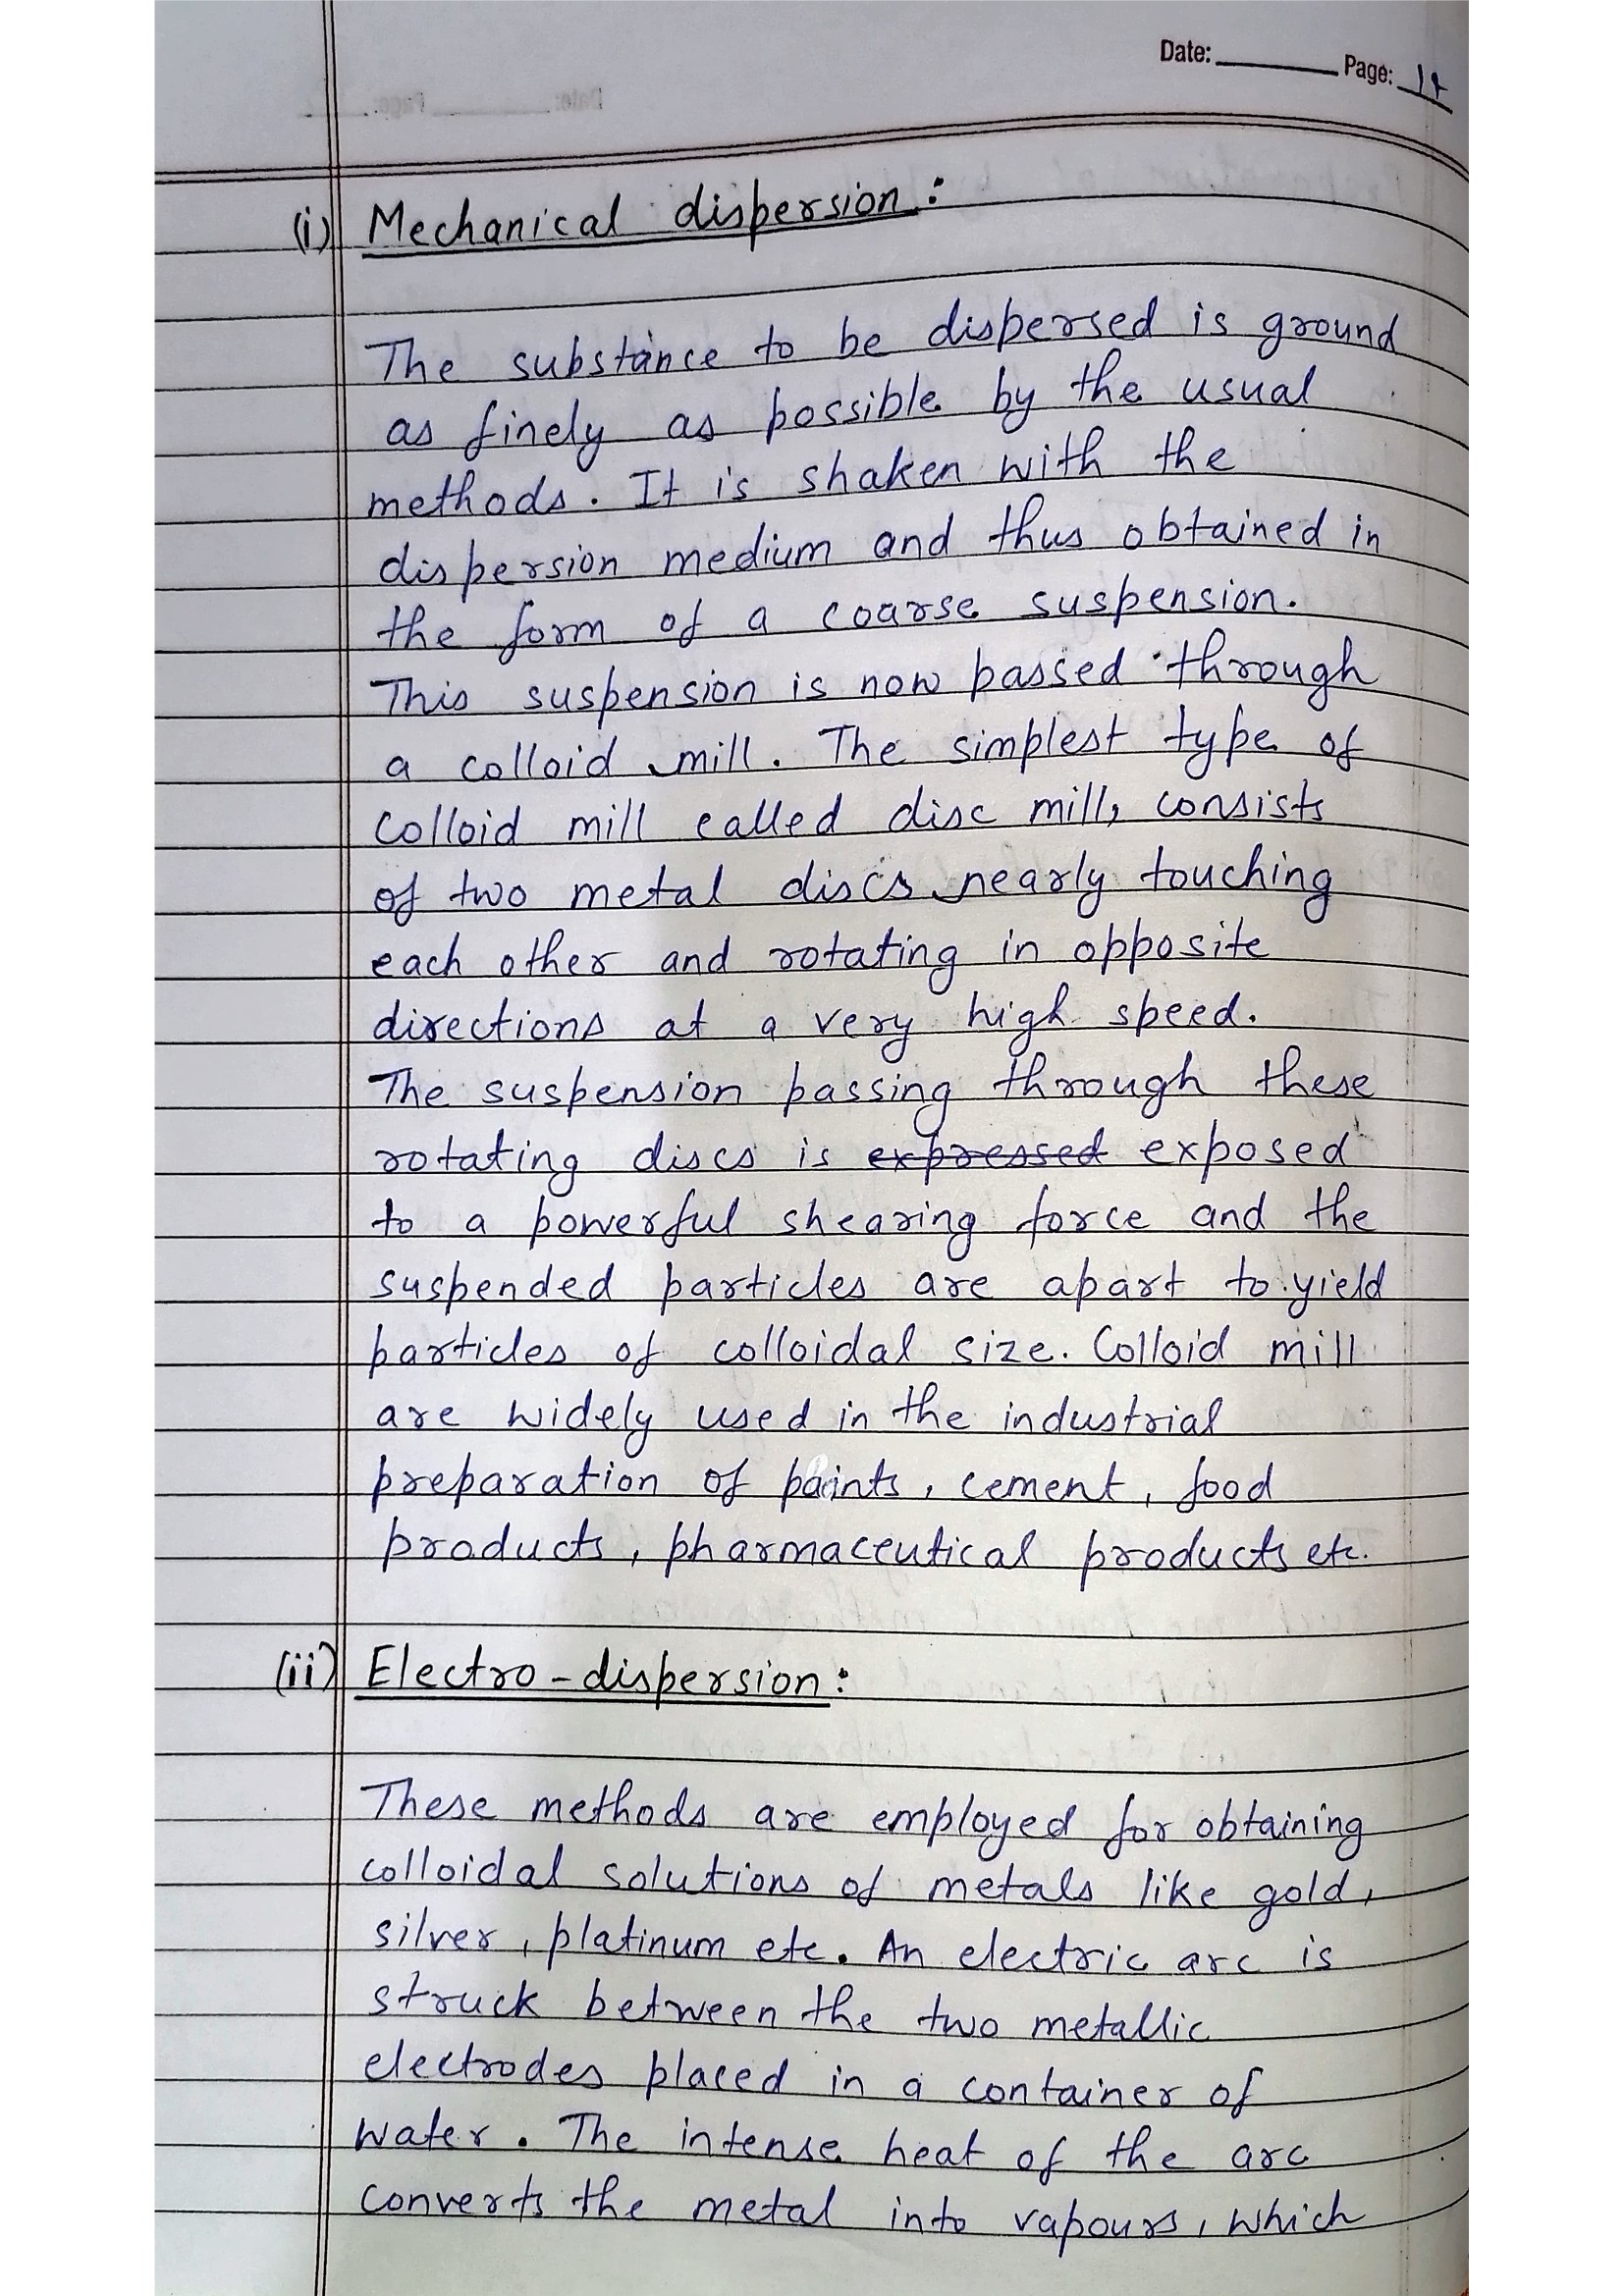 Date: Page: 17
(i) Mechanical dispersion:
The substance to be dispersed is ground
as finely as possible by the usual
methods. It is shaken with the
dispersion medium and thus obtained in
the form of a coarse suspension.
This suspension is now passed through
a colloid mill. The simplest type of
colloid mill called disc mill, consists
of two metal discs nearly touching
each other and rotating in opposite
directions at a very high speed.
The suspension passing through these
rotating discs is expressed exposed
to a powerful shearing force and the
suspended particles are apart to yield
particles of colloidal size. Colloid mill
are widely used in the industrial
preparation of paints, cement, food
products, pharmaceutical products etc.
(ii) Electro-dispersion:
These methods are employed for obtaining
colloidal solutions of metals like gold,
silver, platinum etc. An electric arc is
struck between the two metallic
electrodes placed in a container of
water. The intense heat of the arc
converts the metal into vapours, which